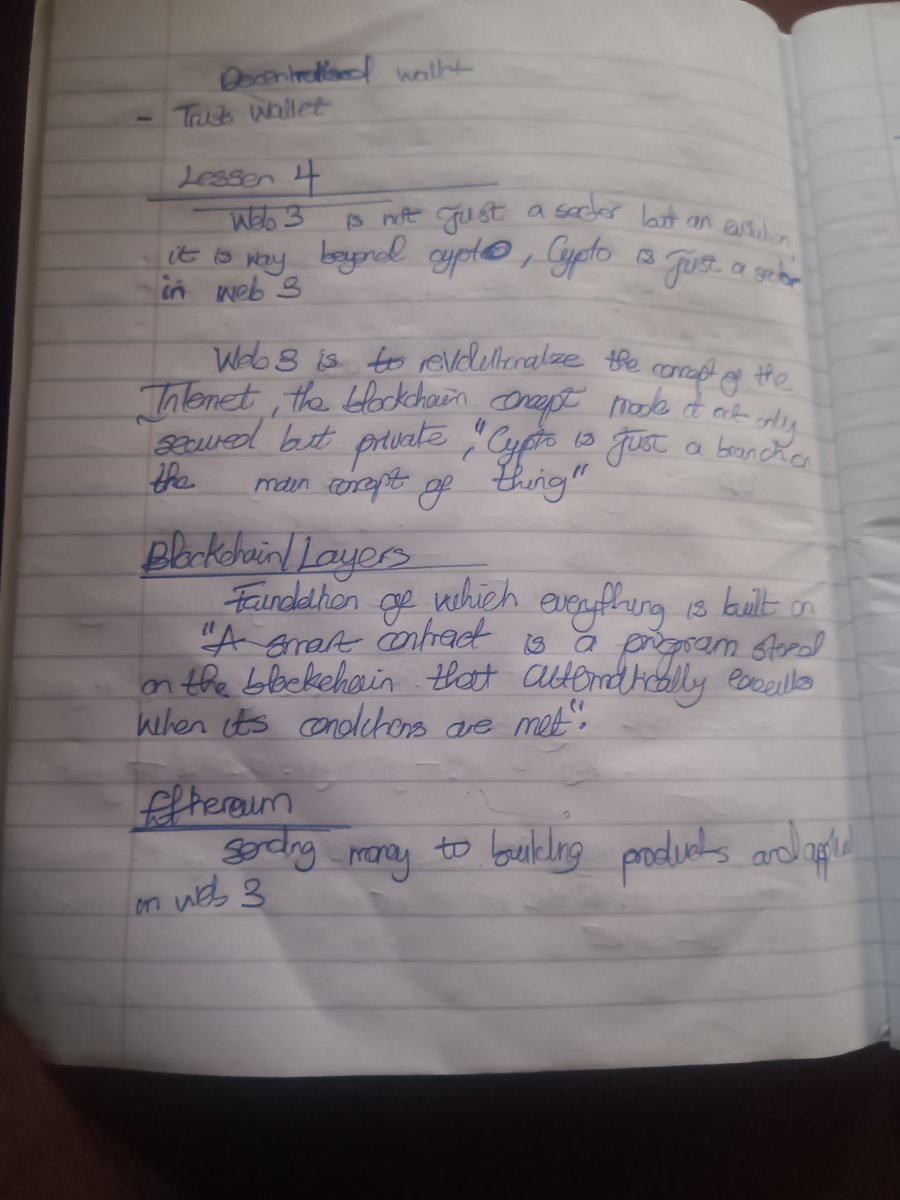 Decentralised wallet
- Trust Wallet
Lesson 4
Web 3 is not Just a sector but an evolution,
it is way beyond cypto, Cypto is Just a sector
in web 3
Web 3 is to revolutionalize the concept of the
Internet, the blockchain concept made it not only
secured but private, "Cypto is Just a branch on
the main concept of thing"
Blockchain/Layers
Foundation of which everything is built on
"A smart contract is a program stored
on the blockchain that automatically executes
when its conditions are met".
Ethereum
Sending money to building products and
on web 3